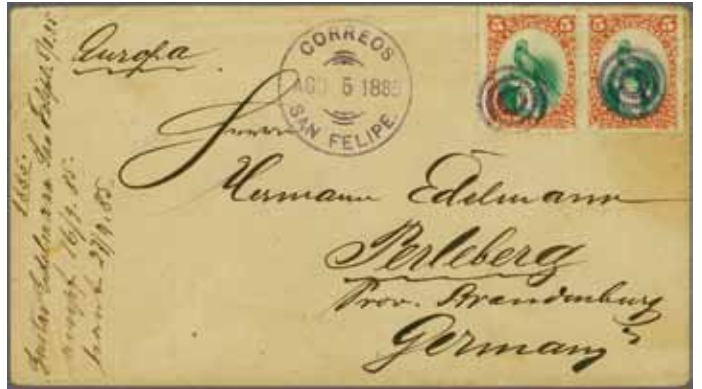 Europa
CORREOS
AGO 5 1885
SAN FELIPE.
5 5 5 5
Herrn
Hermann Edelmann
Perleberg
Prov. Brandenburg
Germany
1885.
Gustav Edelmann San Felipe 5/9.85
16/9.85.
27/9.85